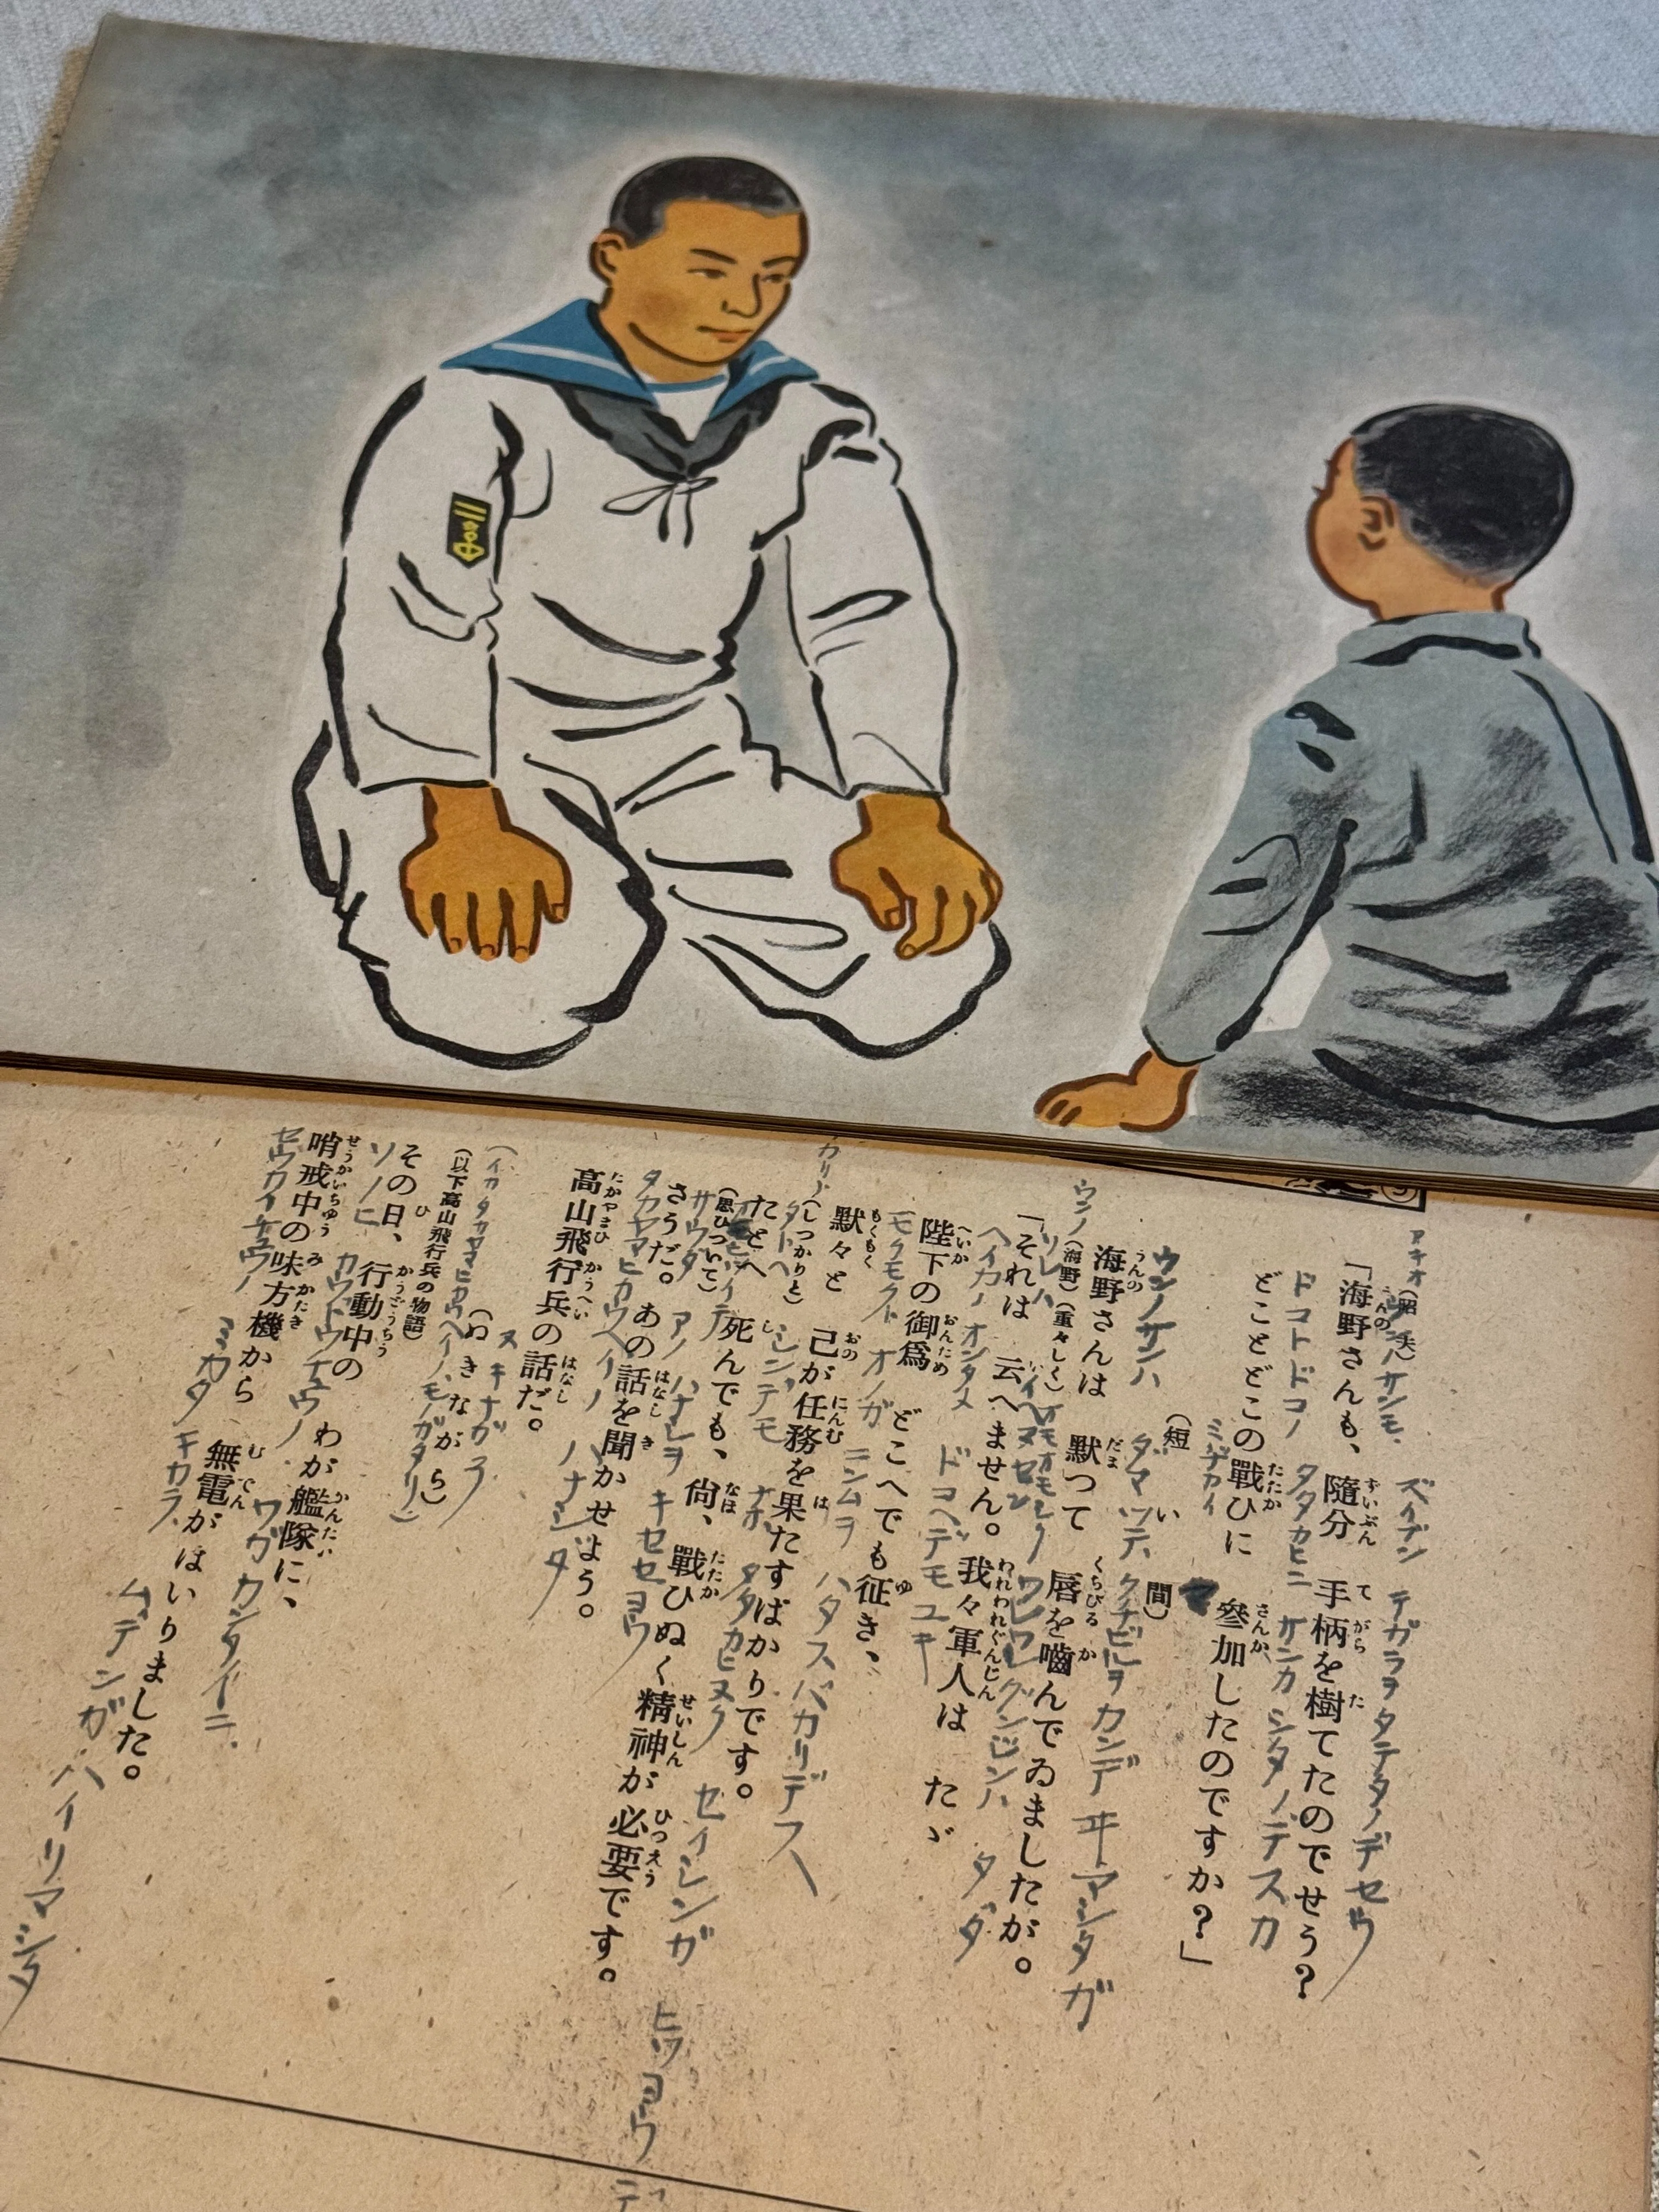 アキオ
(昭夫)
ウンノサンモ、ズイブン テガラヲタテタノデセウ
「海野さんも、隨分 手柄を樹てたのでせう?
ドコトドコノ タタカヒニ サンカ シタノデスカ
どことどこの戰ひに 參加したのですか?」
ミヂカイ マ
(短 間)
ウンノサンハ ダマツテ クチビルヲカンデ ヰマシタガ
海野さんは 默つて 唇を嚙んでゐましたが。
ウンノ オモオモシク
(海野)(重々しく)
ソレハ イヘマセン ワレワレグンジンハ タダ
「それは 云へません。我々軍人は たゞ
ヘイカノオンタメ ドコヘデモユキ
陛下の御爲 どこへでも征き、
モクモクト オノガ ニンムヲ ハタスバカリデス
默々と 己が任務を果たすばかりです。
(しつかりと)
タトヘ シンデモ ナホ タタカヒヌク セイシンガ ヒツヨウデ
たとへ 死んでも、尙、戰ひぬく精神が必要です。
オモヒツイテ
(思ひついて)
サウダ アノ ハナシヲ キカセヨウ
さうだ。あの話を聞かせよう。
タカヤマヒカウヘイノ ハナシダ
高山飛行兵の話だ。
ヌキナガラ
(ぬきながら)
(イカタカヤマヒカウヘイノモノガタリ)
(以下高山飛行兵の物語)
その日、行動中の わが艦隊に、
ソノヒ カウドウチュウノ ワガカンタイニ
哨戒中の味方機から 無電がはいりました。
セウカイチュウノ ミカタキカラ ムデンガハイリマシタ